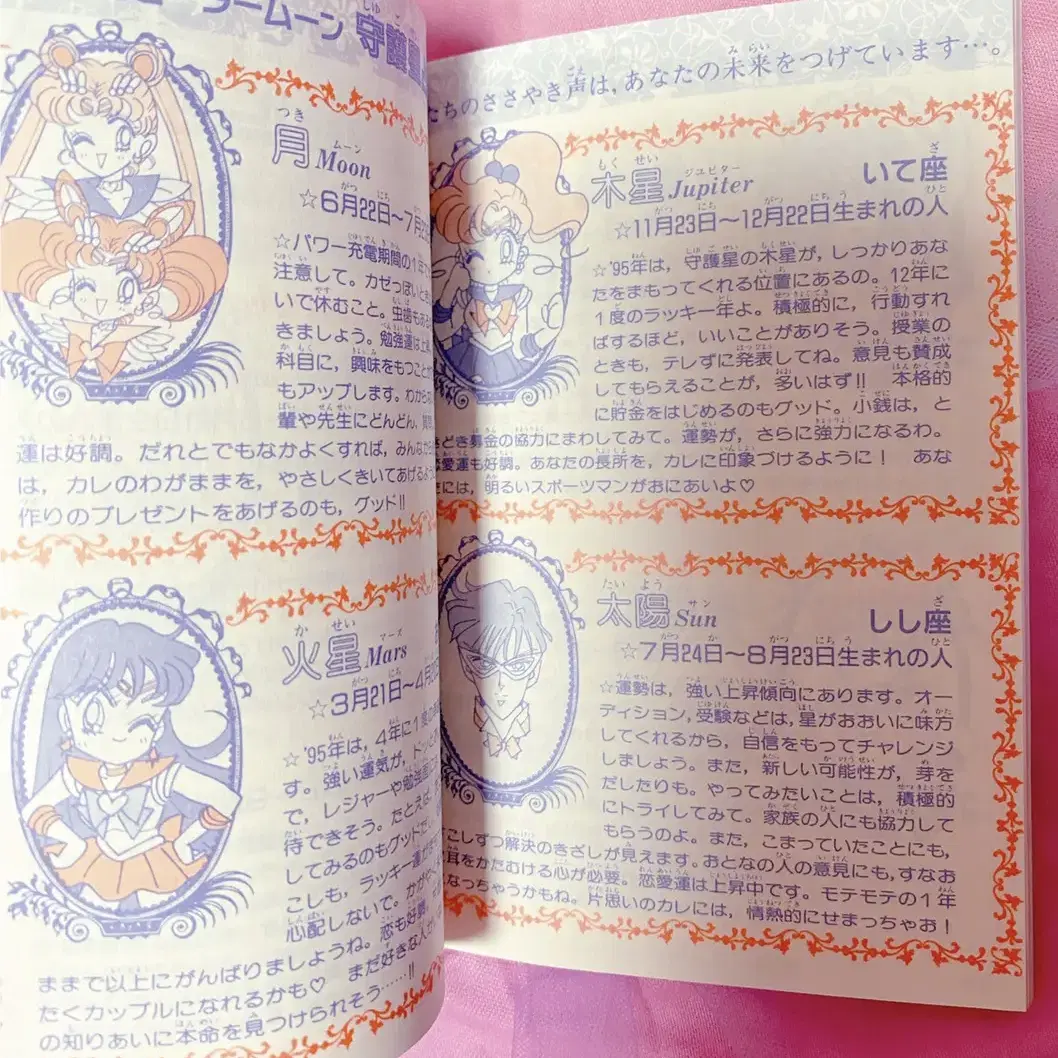 ームーン 守護星
月 Moon
☆6月22日～7月2
☆パワー充電期間の1年
注意して。カゼっぽいとき
いで休むこと。虫歯も
きましょう。勉強運は上
科目に，興味をもつこと
もアップします。わからな
輩や先生にどんどん，質
運は好調。だれとでもなかよくすれば，みんなから
は，カレのわがままを，やさしくきいてあげるよう
作りのプレゼントをあげるのも，グッド!!
火星 Mars
☆3月21日～4月20
☆'95年は，4年に1度の
す。強い運気が，ドッと
で，レジャーや勉強
待できそう。たとえば，
してみるのもグッド
こしも，ラッキー運
心配しないで。かがや
ままで以上にがんばりましょうね。恋も好調
たくカップルになれるかも♡ まだ好きな人
の知りあいに本命を見つけられそう……!!
たちのささやき声は，あなたの未来をつげています…。
木星 Jupiter いて座
☆11月23日～12月22日生まれの人
☆'95年は，守護星の木星が，しっかりあな
たをまもってくれる位置にあるの。12年に
1度のラッキー年よ。積極的に，行動すれ
ばするほど，いいことがありそう。授業の
ときも，テレずに発表してね。意見も賛成
してもらえることが，多いはず!! 本格的
に貯金をはじめるのもグッド。小銭は，と
きどき募金の協力にまわしてみて。運勢が，さらに強力になるわ。
恋愛運も好調。あなたの長所を，カレに印象づけるように！ あな
たには，明るいスポーツマンがおにあいよ♡
太陽 Sun しし座
☆7月24日～8月23日生まれの人
☆運勢は，強い上昇傾向にあります。オー
ディション，受験などは，星がおおいに味方
してくれるから，自信をもってチャレンジ
しましょう。また，新しい可能性が，芽を
だしたりも。やってみたいことは，積極的
にトライしてみて。家族の人にも協力して
もらうのよ。また，こまっていたことにも，
すこしずつ解決のきざしが見えます。おとなの人の意見にも，すなお
に耳をかたむける心が必要。恋愛運は上昇中です。モテモテの1年
なっちゃうかもね。片思いのカレには，情熱的にせまっちゃお！